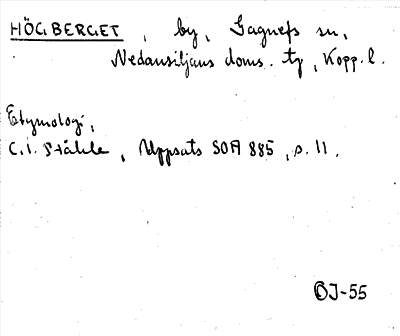 HÖGBERGET, by, Gagnefs sn,
Nedansiljans doms. tg, Kopp. l.
Etymologi,
C. I. Ståhle, Uppsats SOA 885, s. 11.
BJ-55